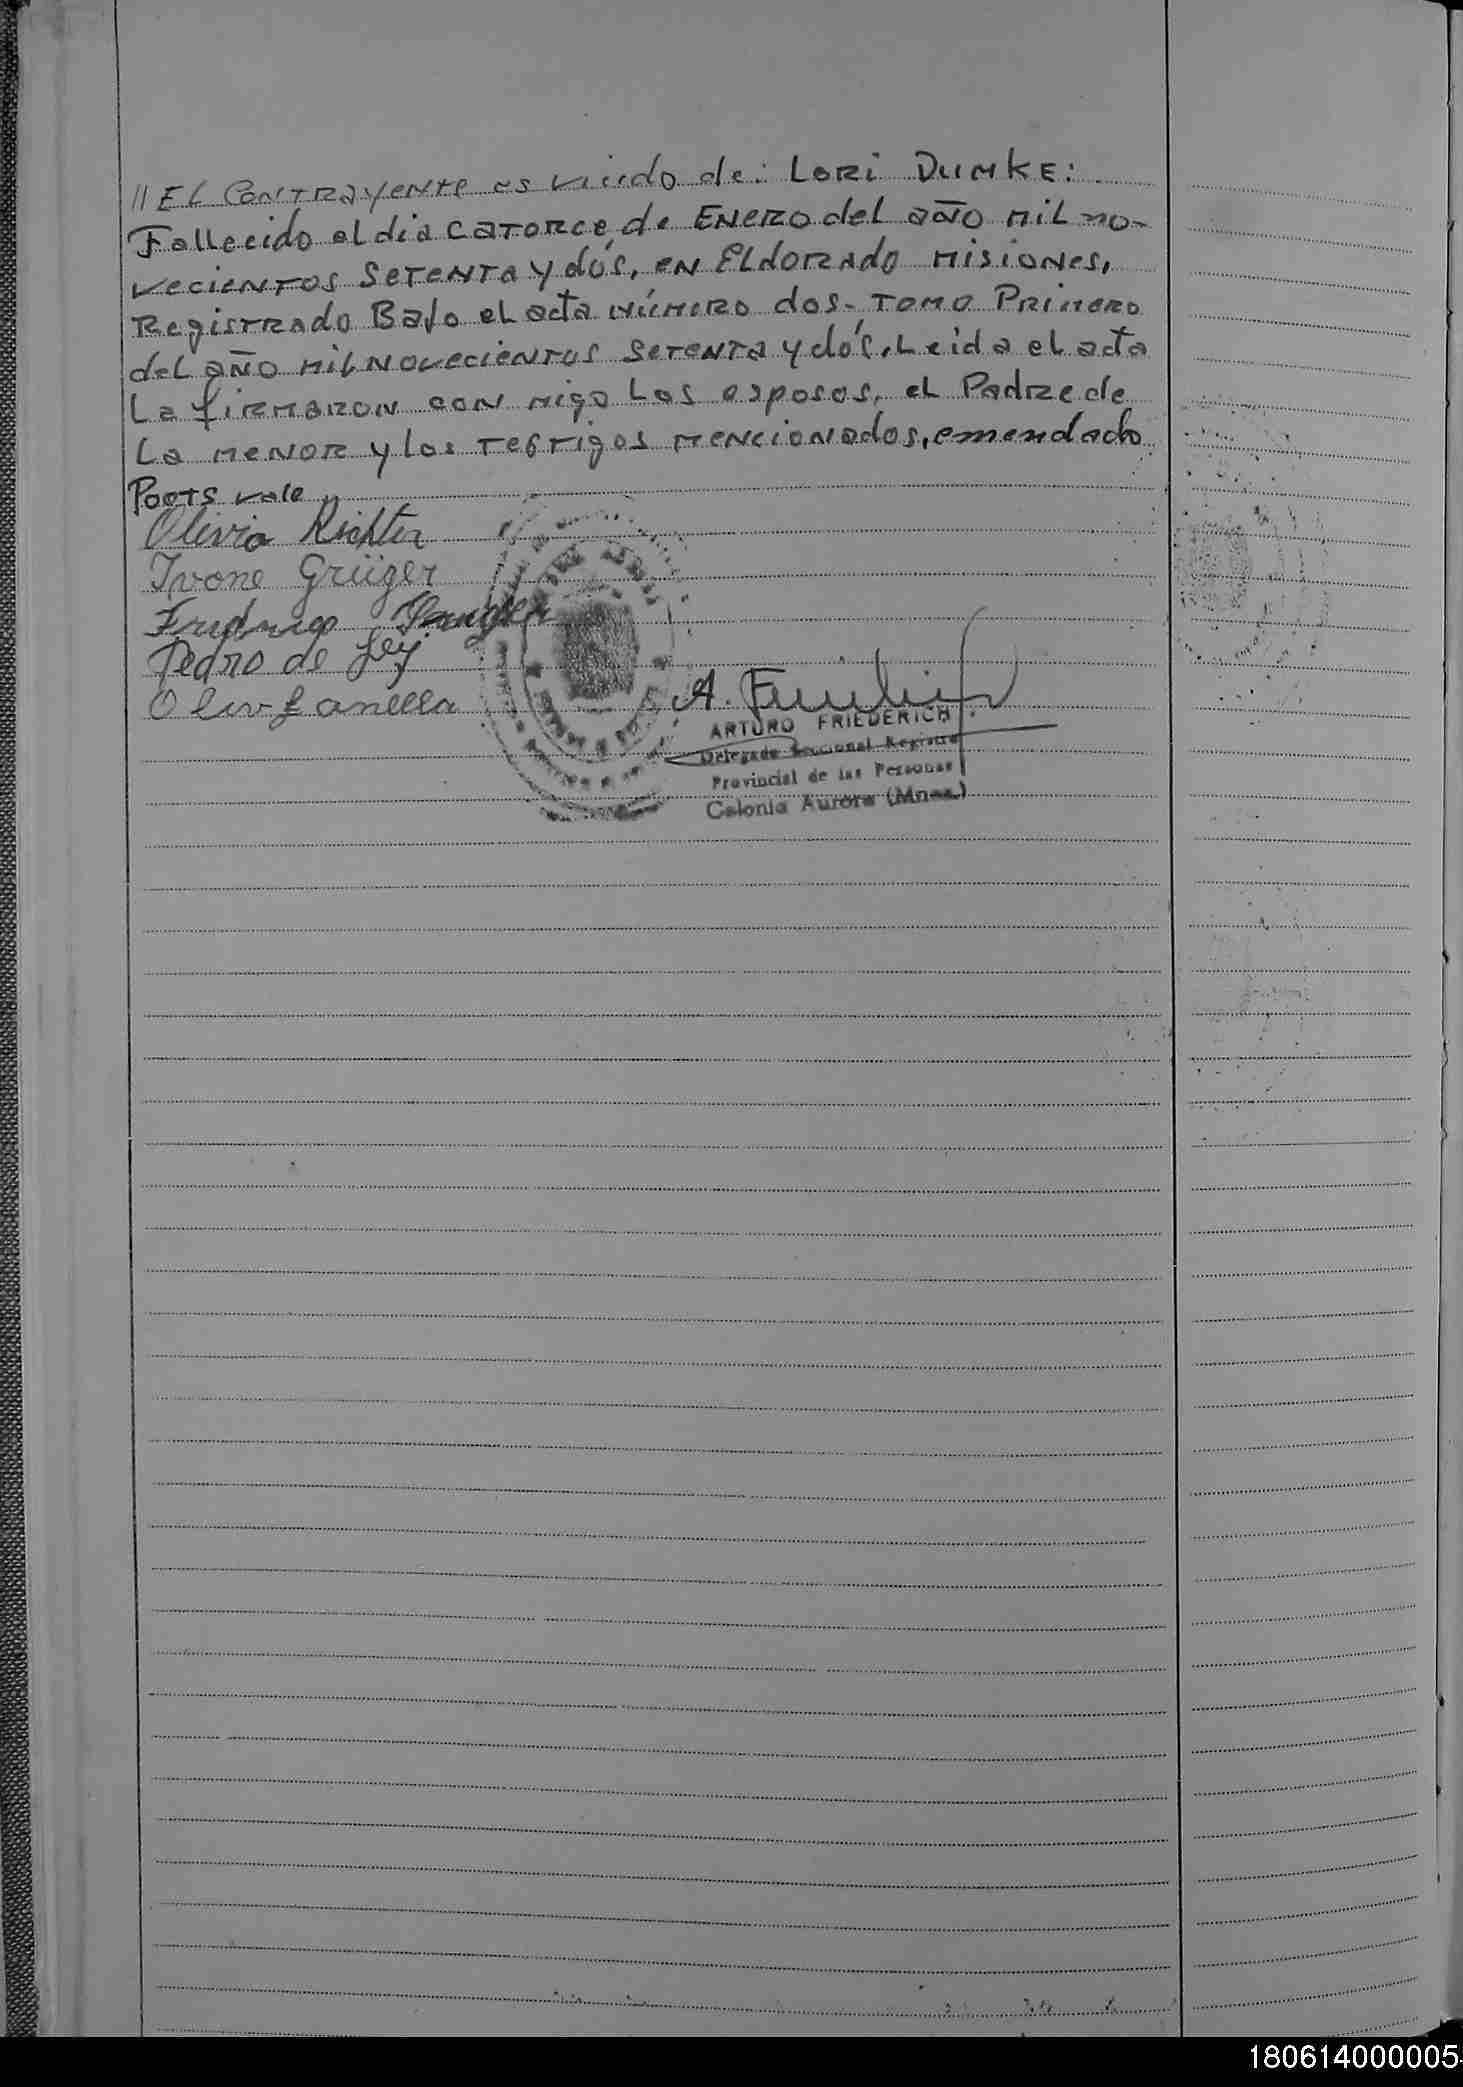 // EL CONTRAYENTE es viudo de: LORi DUMKE:
Fallecido el dia CATORCE de ENERO del año MIL NO-
VECIENTOS SETENTA y dós, EN ELDORADO MISIONES,
REgISTRADO BAJO el acta NÚMERO dos- TOMO PRIMERO
del año MIL NOVECIENTOS SETENTA y dós. Leida el acta
La firmaron CON MIGO Los esposos, el Padre de
La MENOR y los TESTigos MENCIONADOS, emendado
POETS vale
Olivia Richter
Ivone Grüger
Pedro de
Oliv
A.
ARTURO FRIEDERICH
Delegado Seccional Registro
Provincial de las Personas
Colonia Aurora (Mnes.)
180614000005